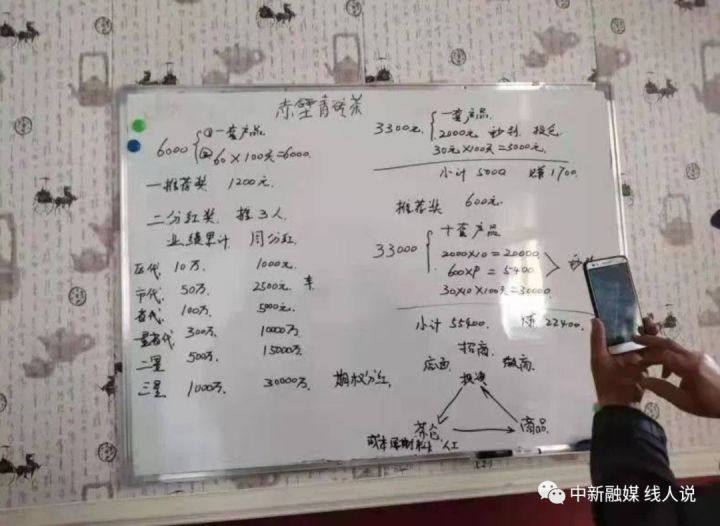 赤壁青砖茶
6000 ①一套产品
②60×100天=6000.
一推荐奖 1200元.
二分红奖. 推3人
业绩累计 月分红.
区代. 10万. 1000元.
市代. 50万. 2500元. 车
省代. 100万. 5000元.
300万. 10000万.
二星 500万. 15000万.
三星 1000万. 30000万. 期权分红.
3300元. 一套产品
2000元 秒到
30元×100天=3000元.
小计 5000 赚1700.
推荐奖 600元.
33000 十套产品
2000×10=20000.
600×9=5400
30×10×100天=30000.
小计 55400. 赚22400.
招商.
店面 微商.
投资
茶仓 商品.
成本 人工
中新融媒 线人说